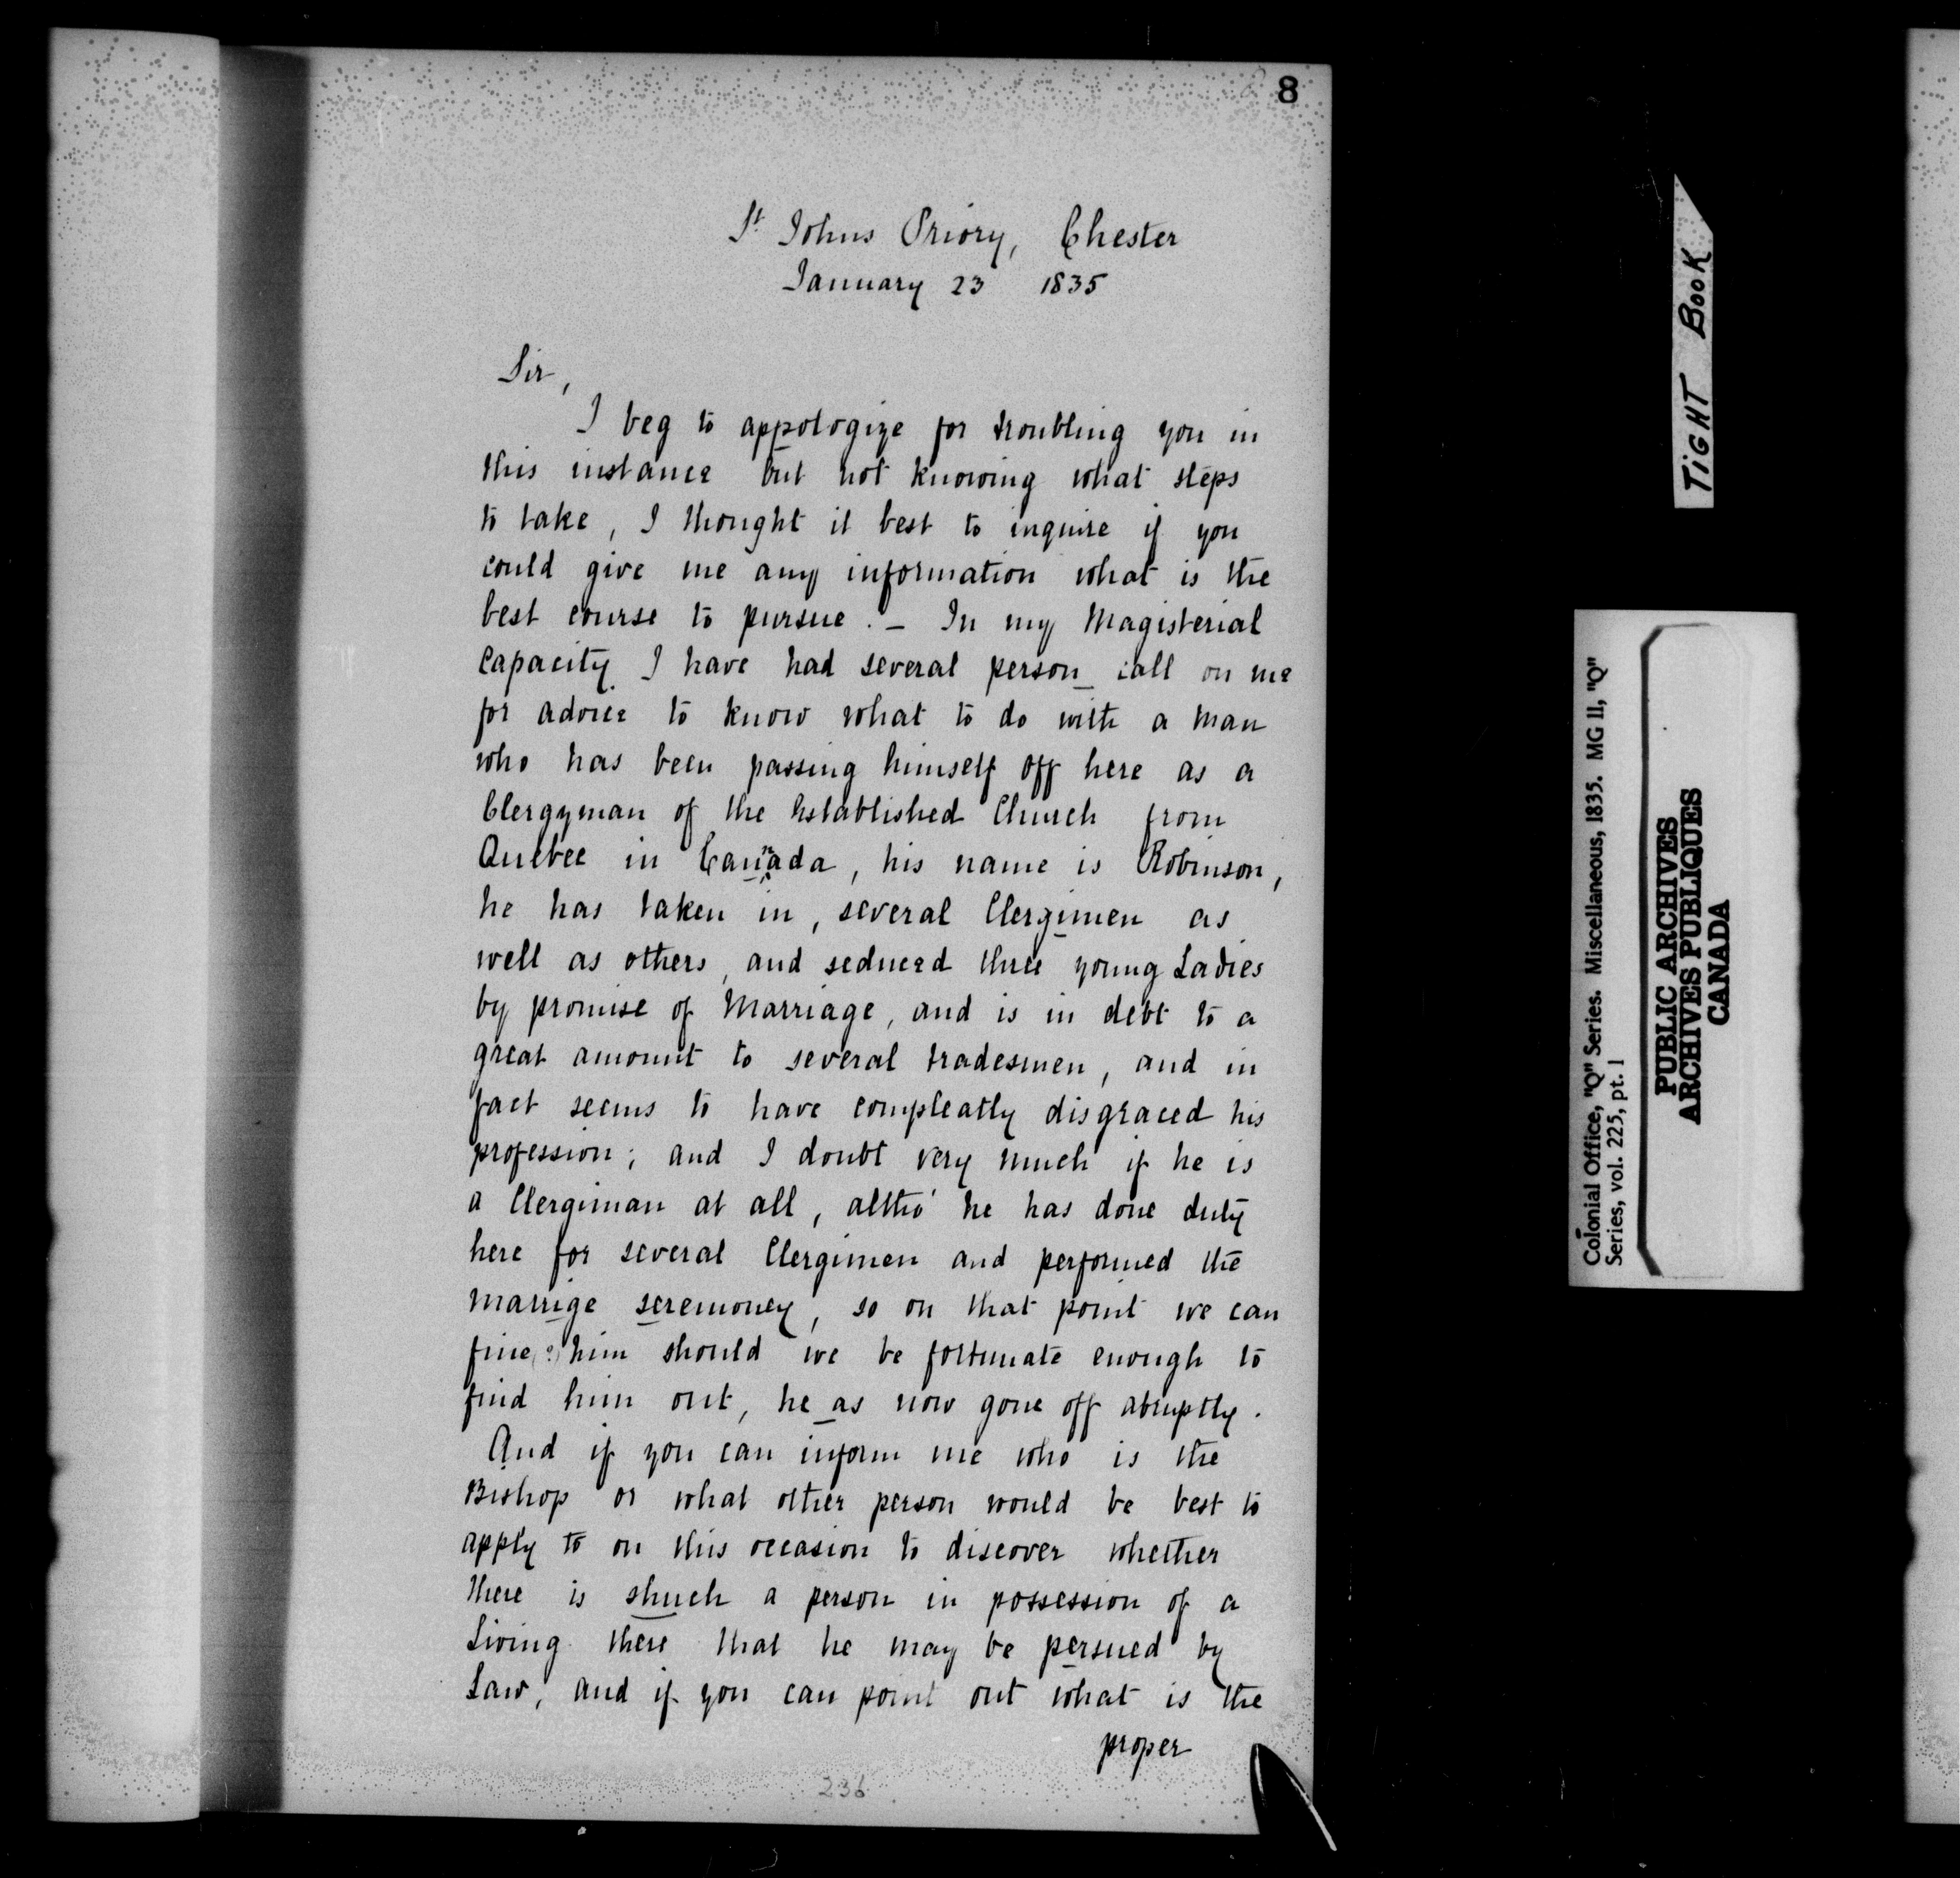 8
St Johns Priory, Chester
January 23 1835
Sir,
I beg to appologize for troubling you in
this instance but not knowing what steps
to take, I thought it best to inquire if you
could give me any information what is the
best course to pursue. – In my Magisterial
Capacity I have had several person call on me
for advice to know what to do with a man
who has been passing himself off here as a
Clergyman of the Established Church from
Quebec in Cannada, his name is Robinson,
he has taken in, several Clergimen as
well as others, and seduced three young Ladies
by promise of Marriage, and is in debt to a
great amount to several tradesmen, and in
fact seems to have compleatly disgraced his
profession; and I doubt very much if he is
a Clergiman at all, altho' he has done duty
here for several Clergimen and performed the
marrige seremoney, so on that point we can
fine (?) him should we be fortunate enough to
find him out, he as now gone off abruptly.
And if you can inform me who is the
Bishop or what other person would be best to
apply to on this occasion to discover whether
there is shuch a person in possession of a
Living there that he may be persued by
Law, and if you can point out what is the
proper
236
TIGHT BOOK
Colonial Office, "Q" Series. Miscellaneous, 1835. MG 11, "Q"
Series, vol. 225, pt. 1
PUBLIC ARCHIVES
ARCHIVES PUBLIQUES
CANADA